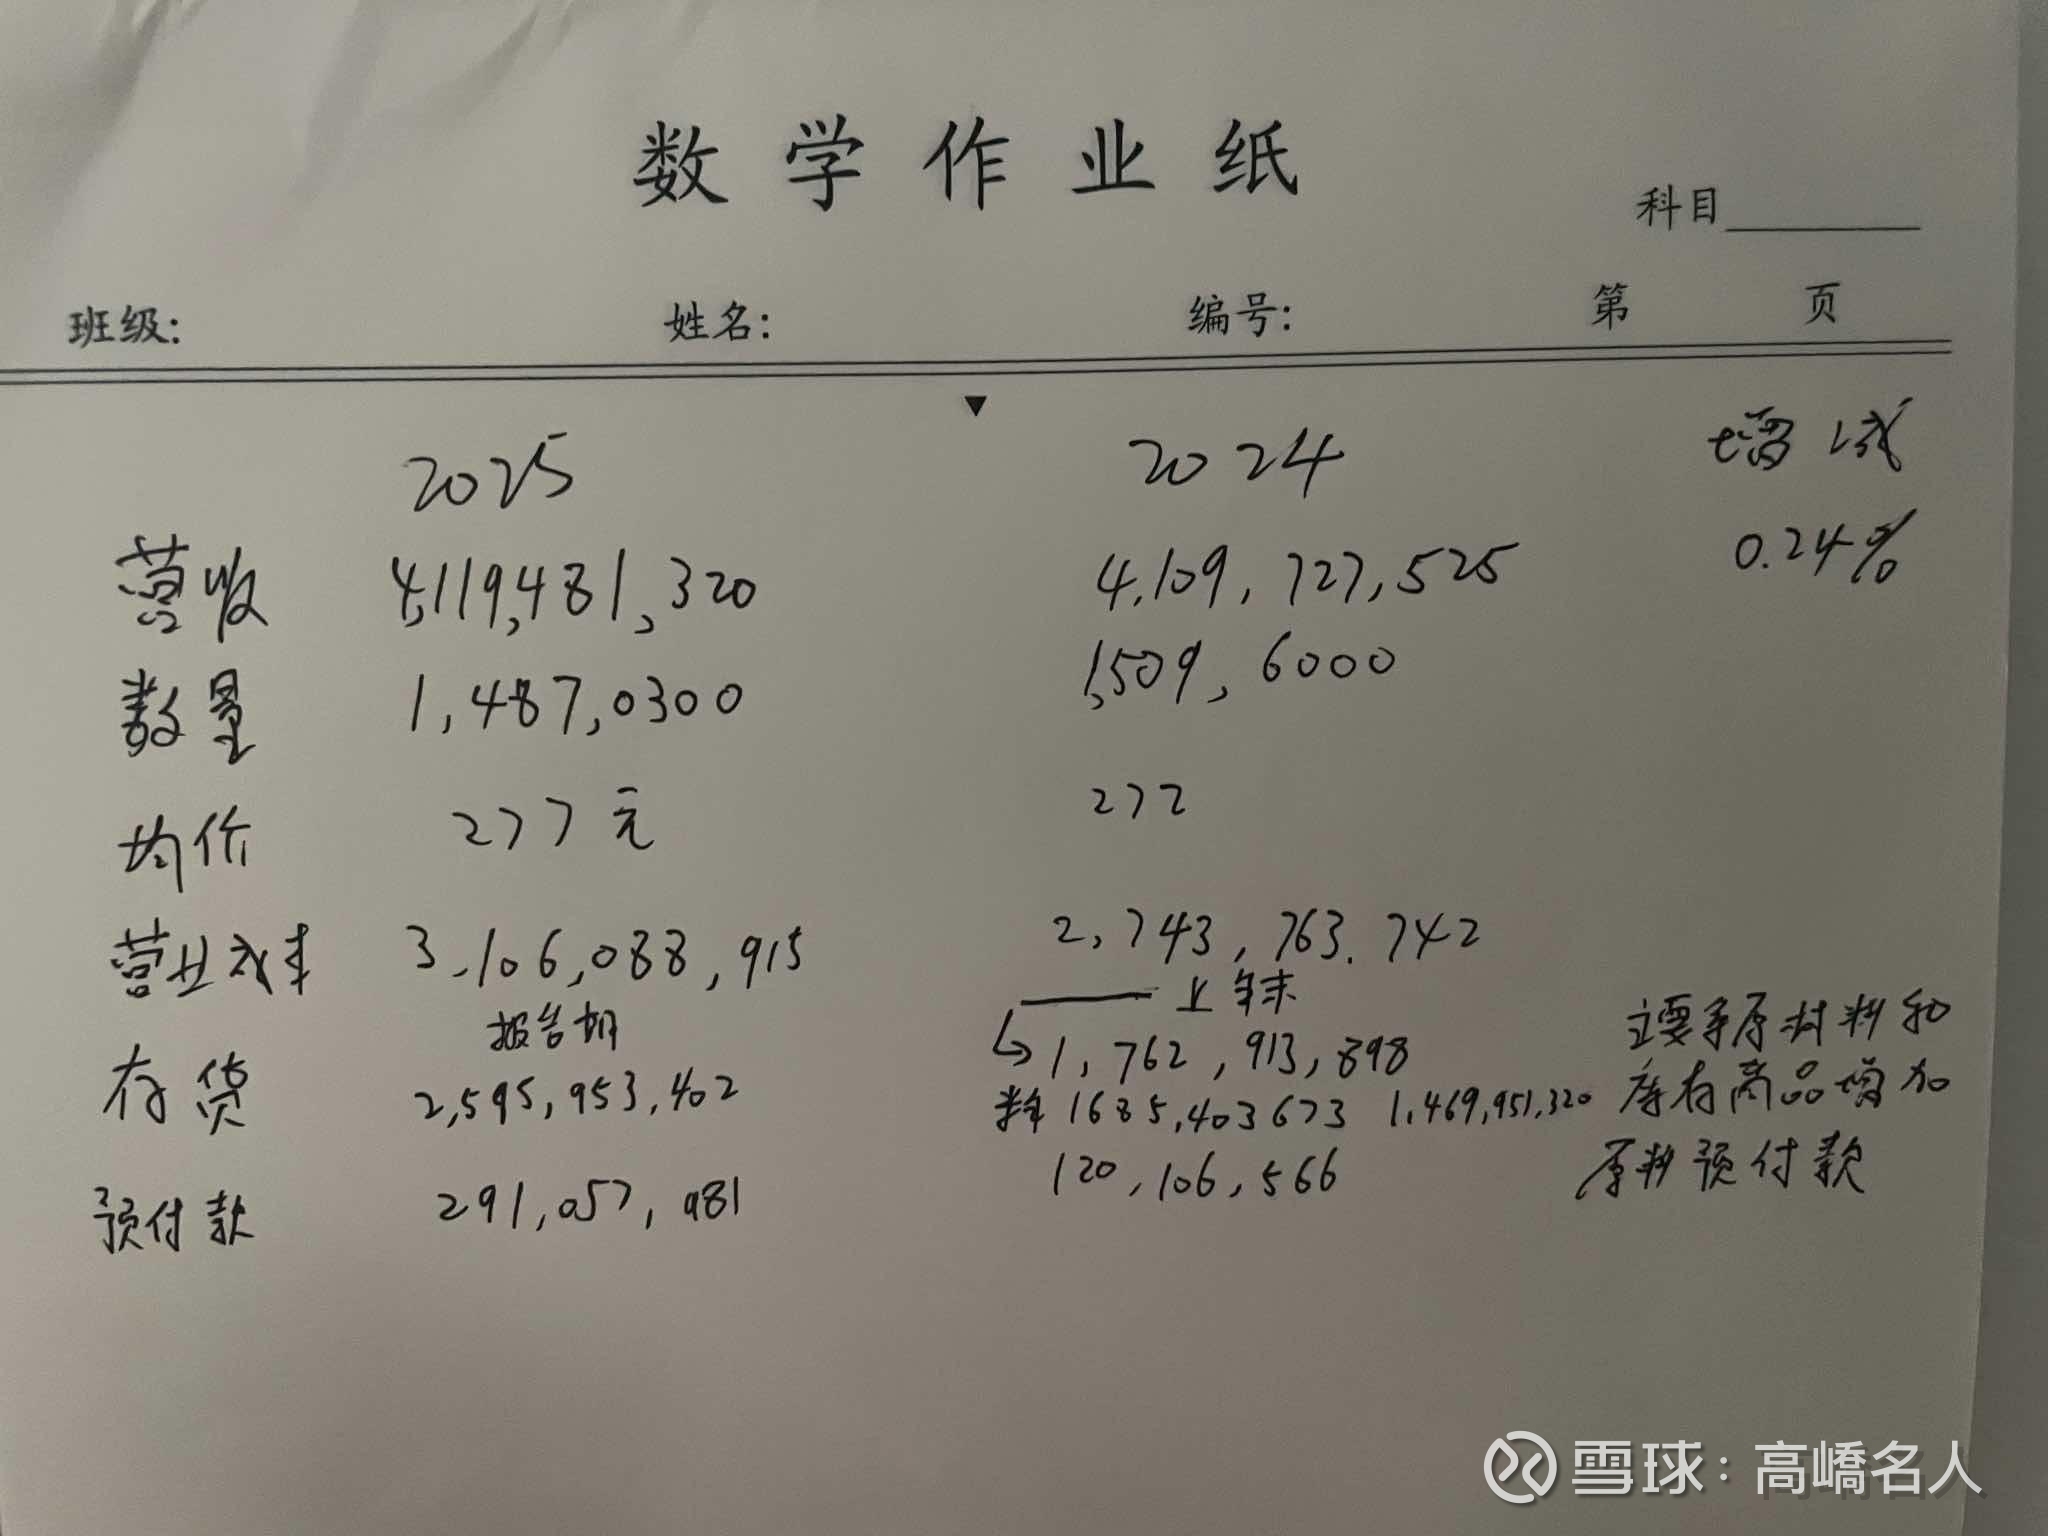 数学作业纸
科目
班级: 姓名: 编号: 第 页
▼
2025 2024 增减
营收 4,119,481,320 4,109,727,525 0.24%
数量 1,487,0300 1,509,6000
均价 277元 272
营业成本 3,106,088,915 2,743,763,742
报告期 上年末
存货 2,595,953,402 1,762,913,898 主要系原材料和
1685,403673 1,469,951,320 库存商品增加
预付款 291,057,981 120,106,566 原料预付款
雪球:高嶠名人